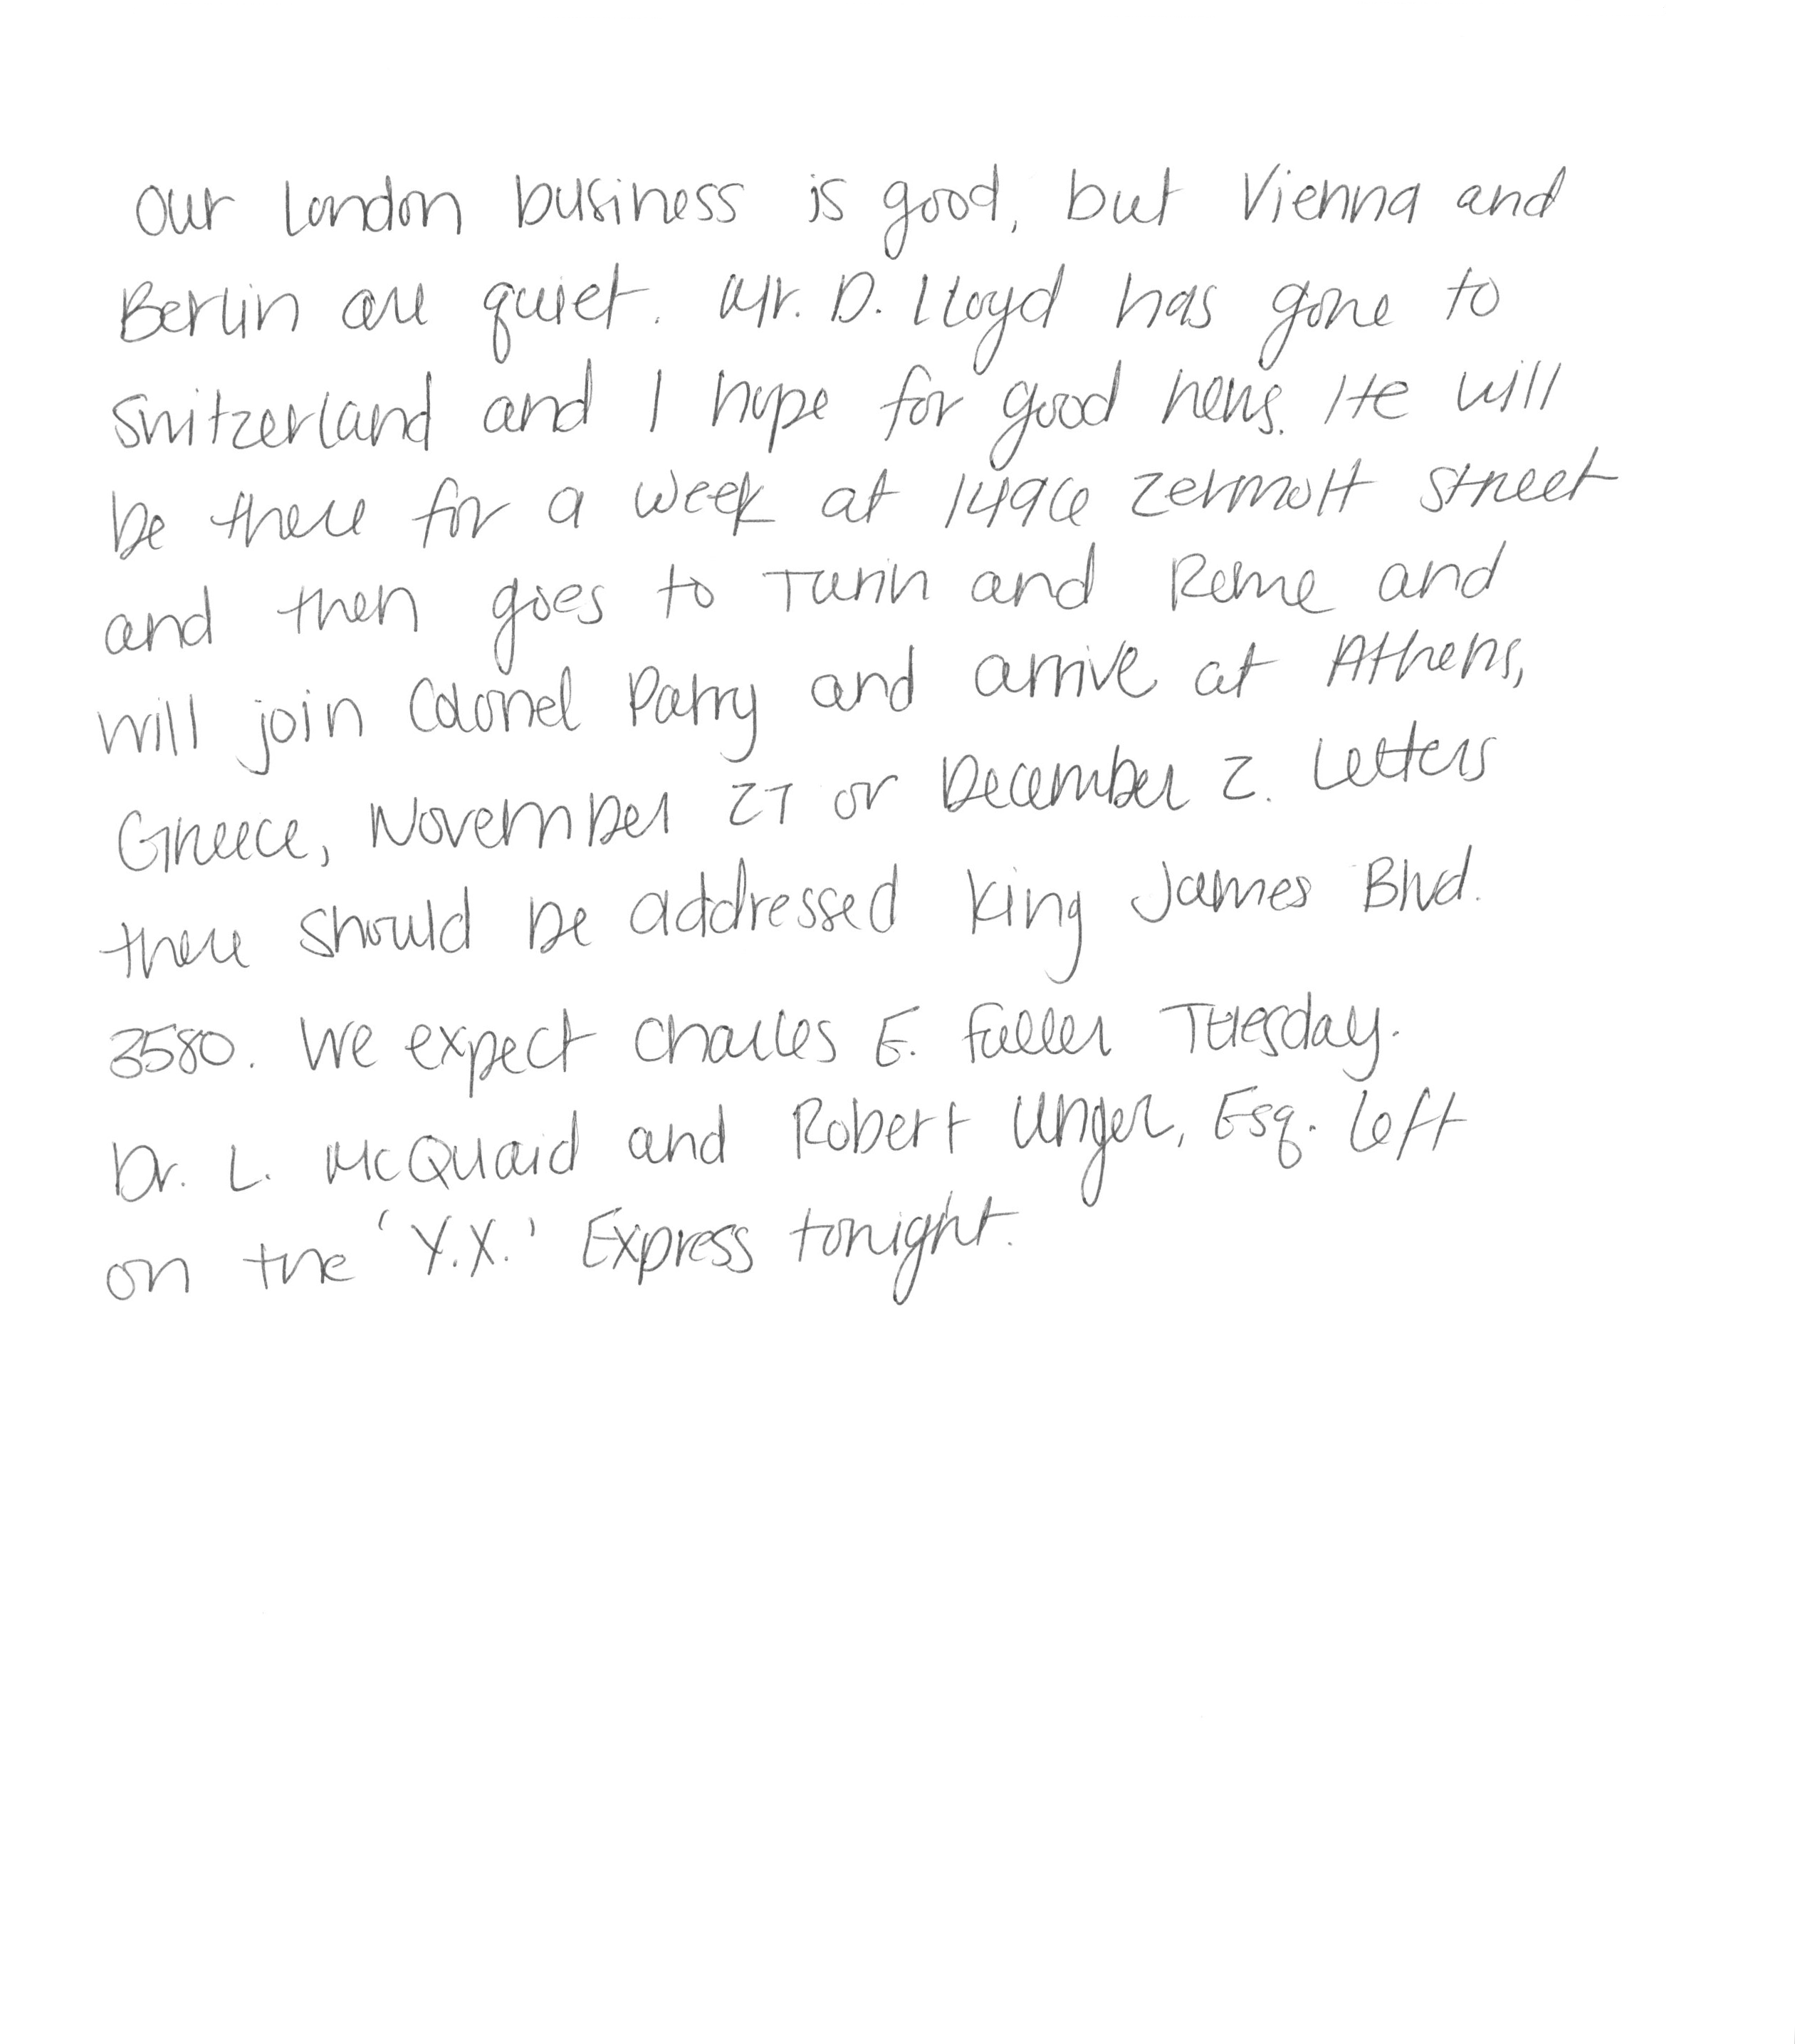 Our London business is good, but Vienna and
Berlin are quiet. Mr. D. Lloyd has gone to
Switzerland and I hope for good news. He will
be there for a week at 1496 Zermott Street
and then goes to Turin and Rome and
will join Colonel Parry and arrive at Athens,
Greece, November 27 or December 2. Letters
there should be addressed King James Blvd.
3580. We expect Charles E. Fuller Tuesday.
Dr. L. McQuaid and Robert Unger, Esq. left
on the 'Y.X.' Express tonight.